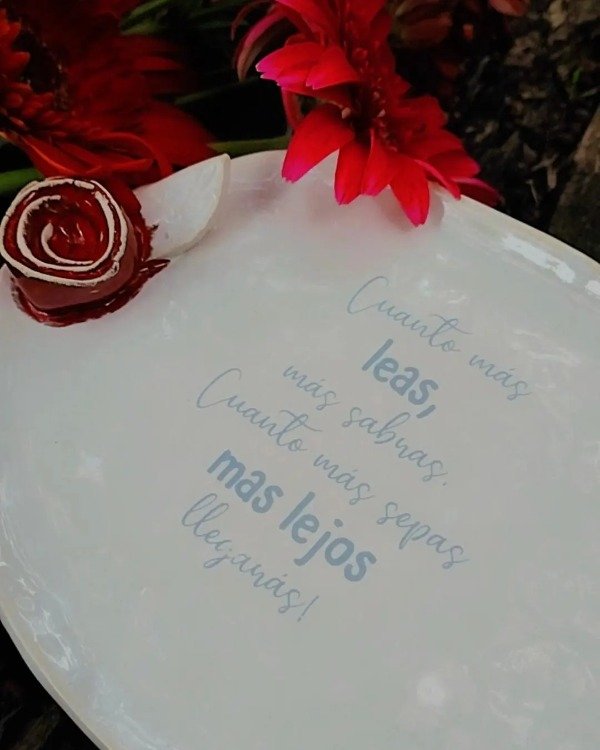 Cuanto más
leas,
más sabras.
Cuanto más sepas
mas lejos
llegarás!